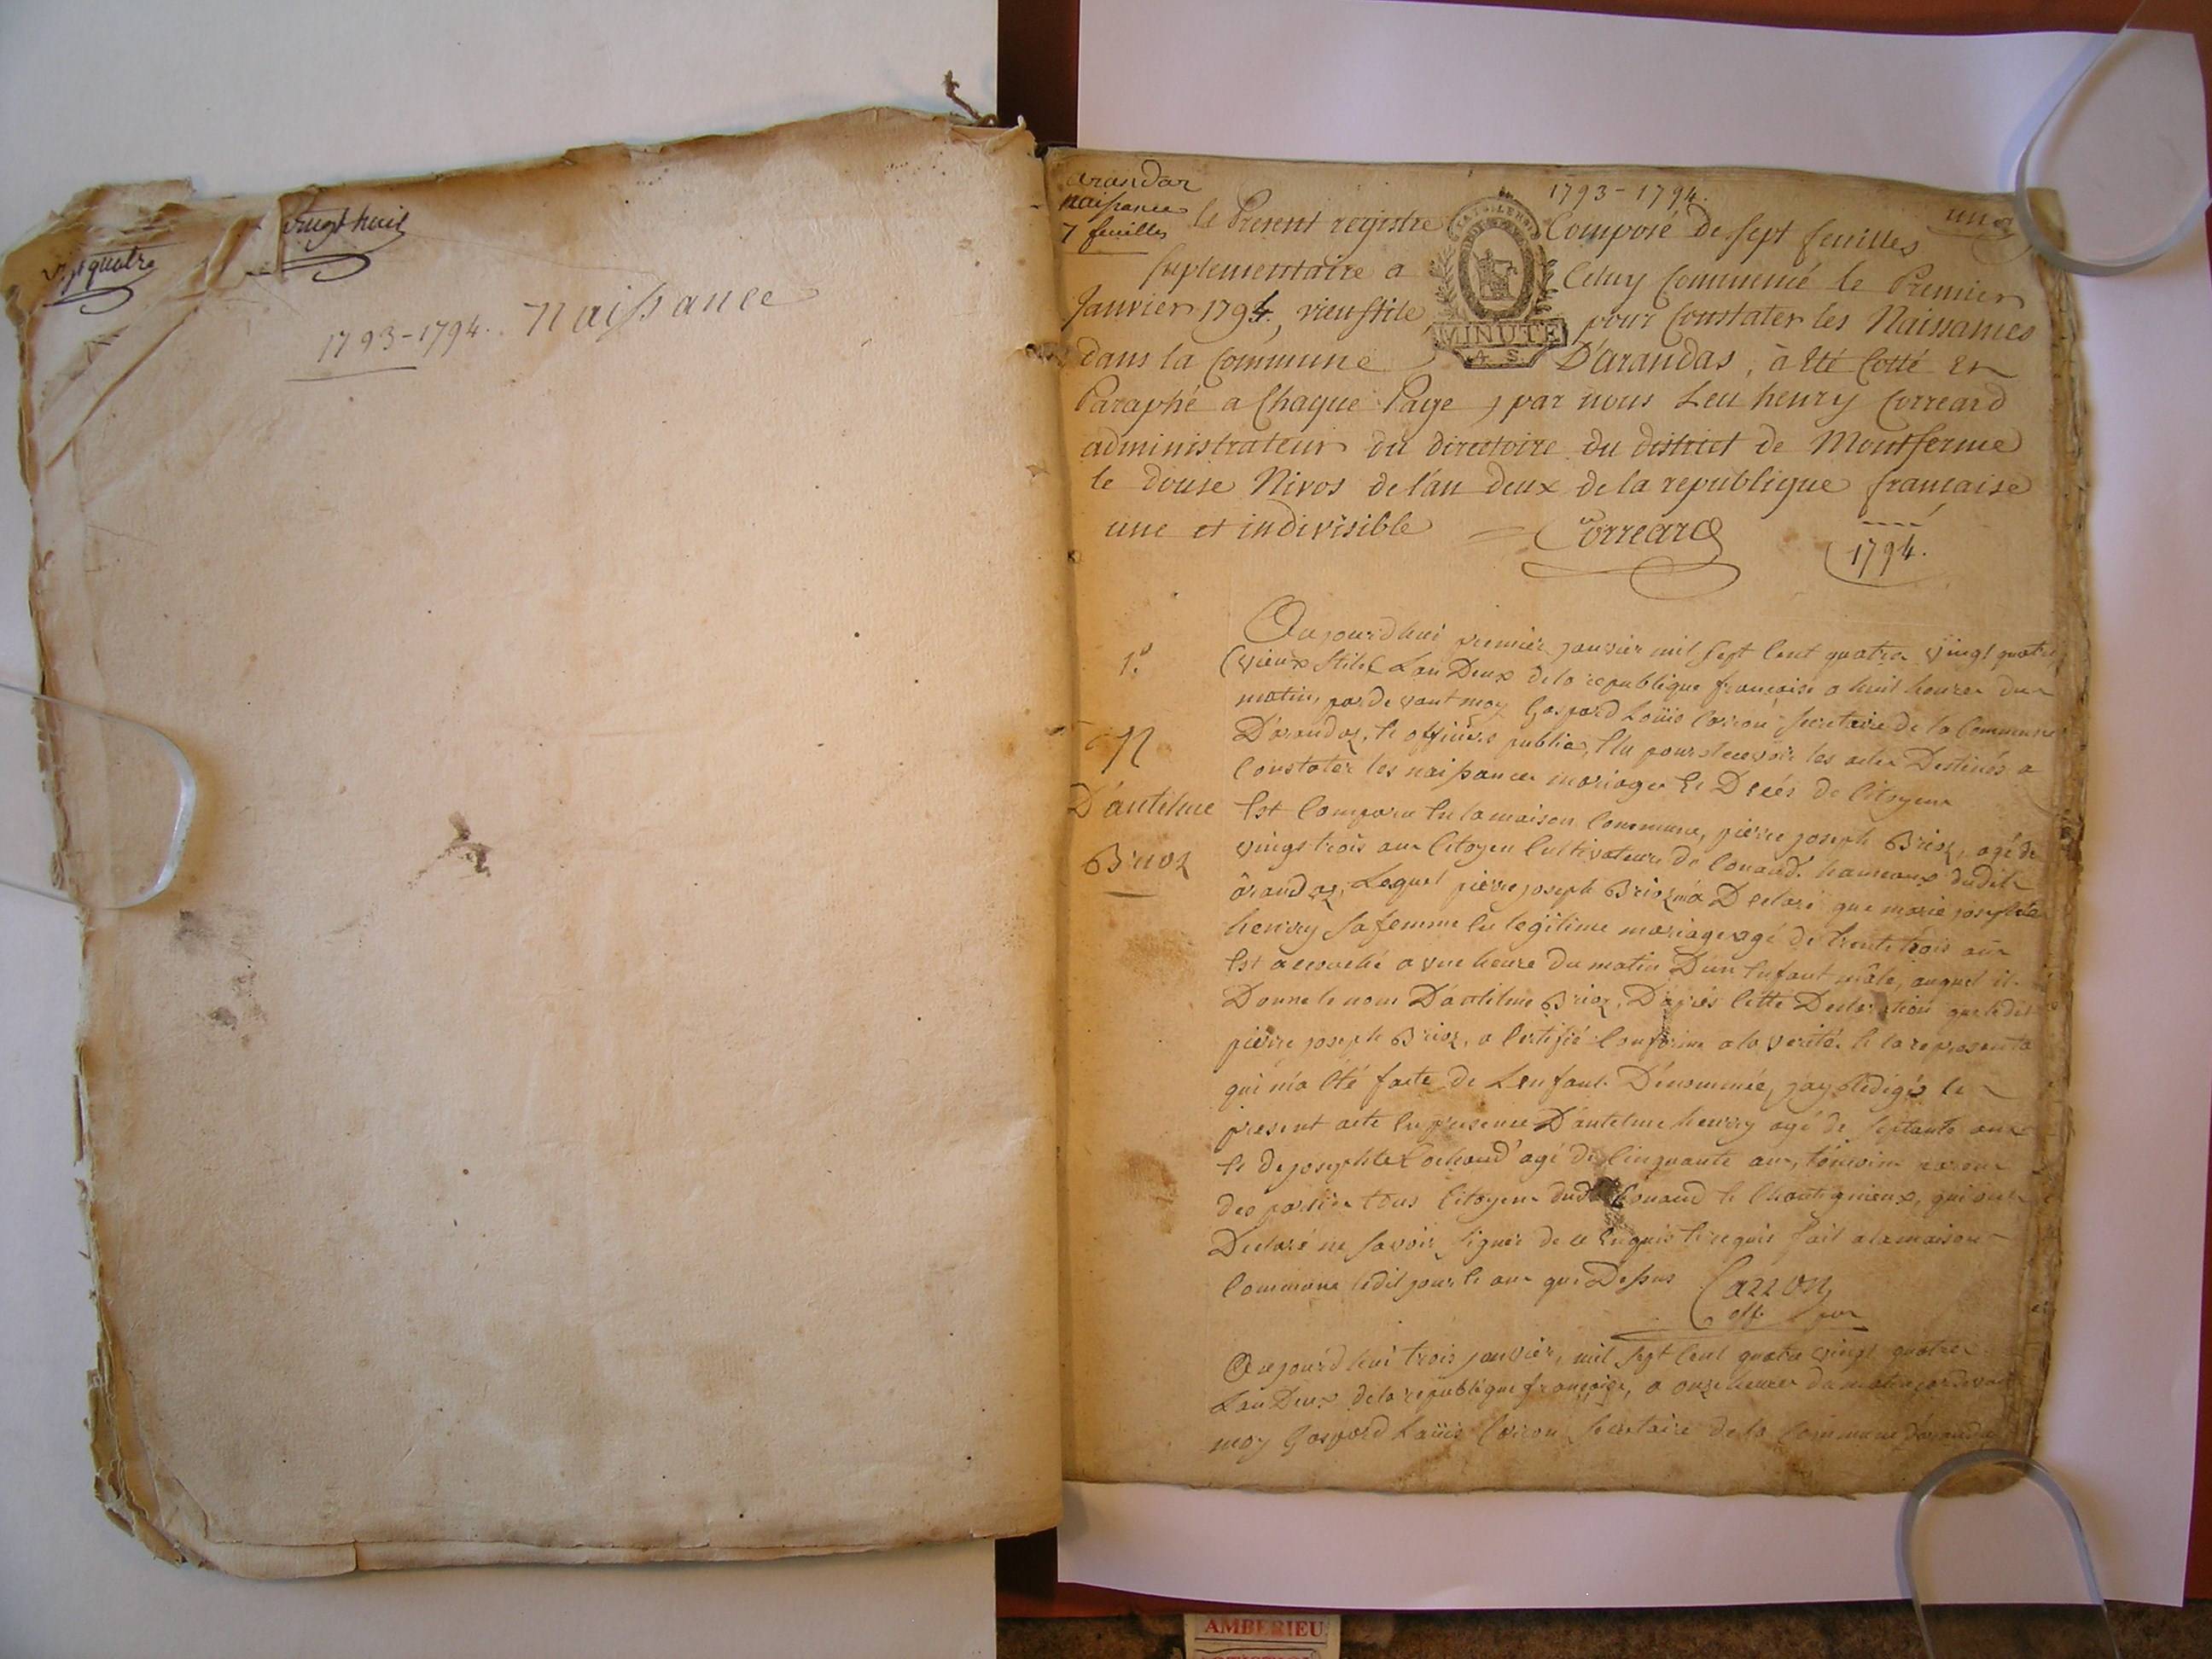 vingt huit
vingt quatre
1793-1794. Naissance
arandas
naissances
7 feuilles
1793-1794.
un
le Present registre Composé de sept feuilles
suplementaire a Celuy Commencé le Premier
Janvier 1794, vieu stile, pour Constater les Naissances
dans la Commune D'arandas, à été Cotté et
Paraphé a Chaque Page, par nous Leu henry Correard
administrateur du directoire du district de Montferme
le douse Nivos de l'an deux de la republique francaise
une et indivisible = Correard
1794.
MINUTE
4. S.
1.º
N
D'antelme
Brioz
Aujourdhui premier janvier mil sept Cent quatre vingt quatorze
(vieux Stile) Lan Deux de la republique françoise a huit heures du
matin, par devant moy Gaspard Loüis Carron secretaire de la Commune
D'arandas, et officier public, Elu pour recevoir les actes Destinés a
Constater les naissances mariages Et Decés de Citoyens
Est Comparu En la maison Commune, pierre joseph Brioz, agé de
vingt trois ans Citoyen Cultivateur de Conand hameaux dudit
arandas, Lequel pierre joseph Brioz m'a Declaré que marie josephte
henry sa femme En legitime mariage agé de trente trois ans
Est accouché a une heure du matin D'un Enfant mâle, auquel il
Donne le nom D'antelme Brioz, D'après Cette Declaration que ledit
pierre joseph Brioz, a Certifié Conforme a la verité Et la representa
qui m'a Eté faite de L'enfant Denommée, j'ay Redigés le
present acte En presence D'antelme henry agé de septante ans
Et de josephte Lochand agé de Cinquante ans, témoins
des parties tous Citoyens dudit Conand Et Chantignieux, qui ont
Declaré ne savoir signer de ce Enquis Et requis fait a la maison
Commune ledit jour Et an que Dessus Carron
off. pu
Aujourdhui trois janvier, mil sept Cent quatre vingt quatorze
Lan Deux de la republique françoise, a onze heures du matin par devant
moy Gaspard Loüis Carron secretaire de la Commune D'arandas
AMBERIEU